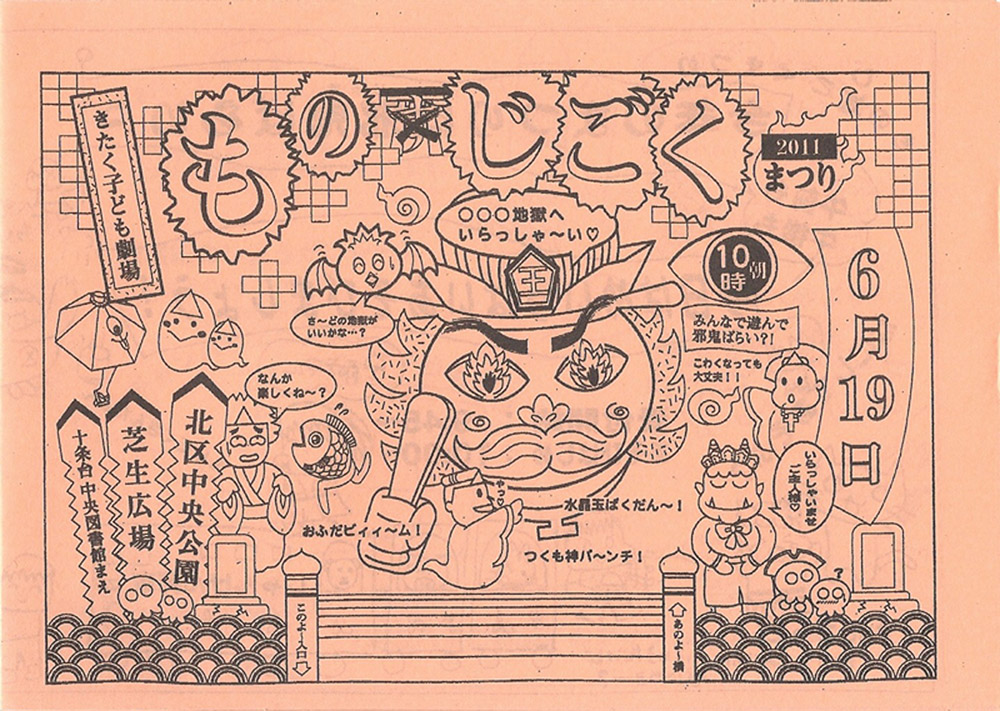 もの天じごく
2011
まつり
きたく子ども劇場
〇〇〇地獄へ
いらっしゃ～い♡
王
10
朝
時
6月19日
さ～どの地獄が
いいかな…？
みんなで遊んで
邪鬼ばらい?!
こわくなっても
大丈夫！！
なんか
楽しくね～？
北区中央公園
芝生広場
十条台 中央図書館まえ
いらっしゃいませ
ご主人様♡
やっ♡
水晶玉ばくだん～！
おふだビィィ～ム！
つくも神パ～ンチ！
?
このよ～入口⇩
⇧あのよ～橋